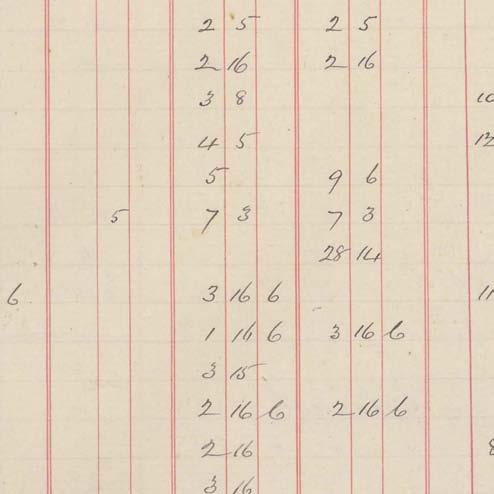 2 5 2 5
2 16 2 16
3 8 10
4 5 12
5 9 6
5 7 3 7 3
28 14
6 3 16 6 11
1 16 6 3 16 6
3 15
2 16 6 2 16 6
2 16 8
3 16